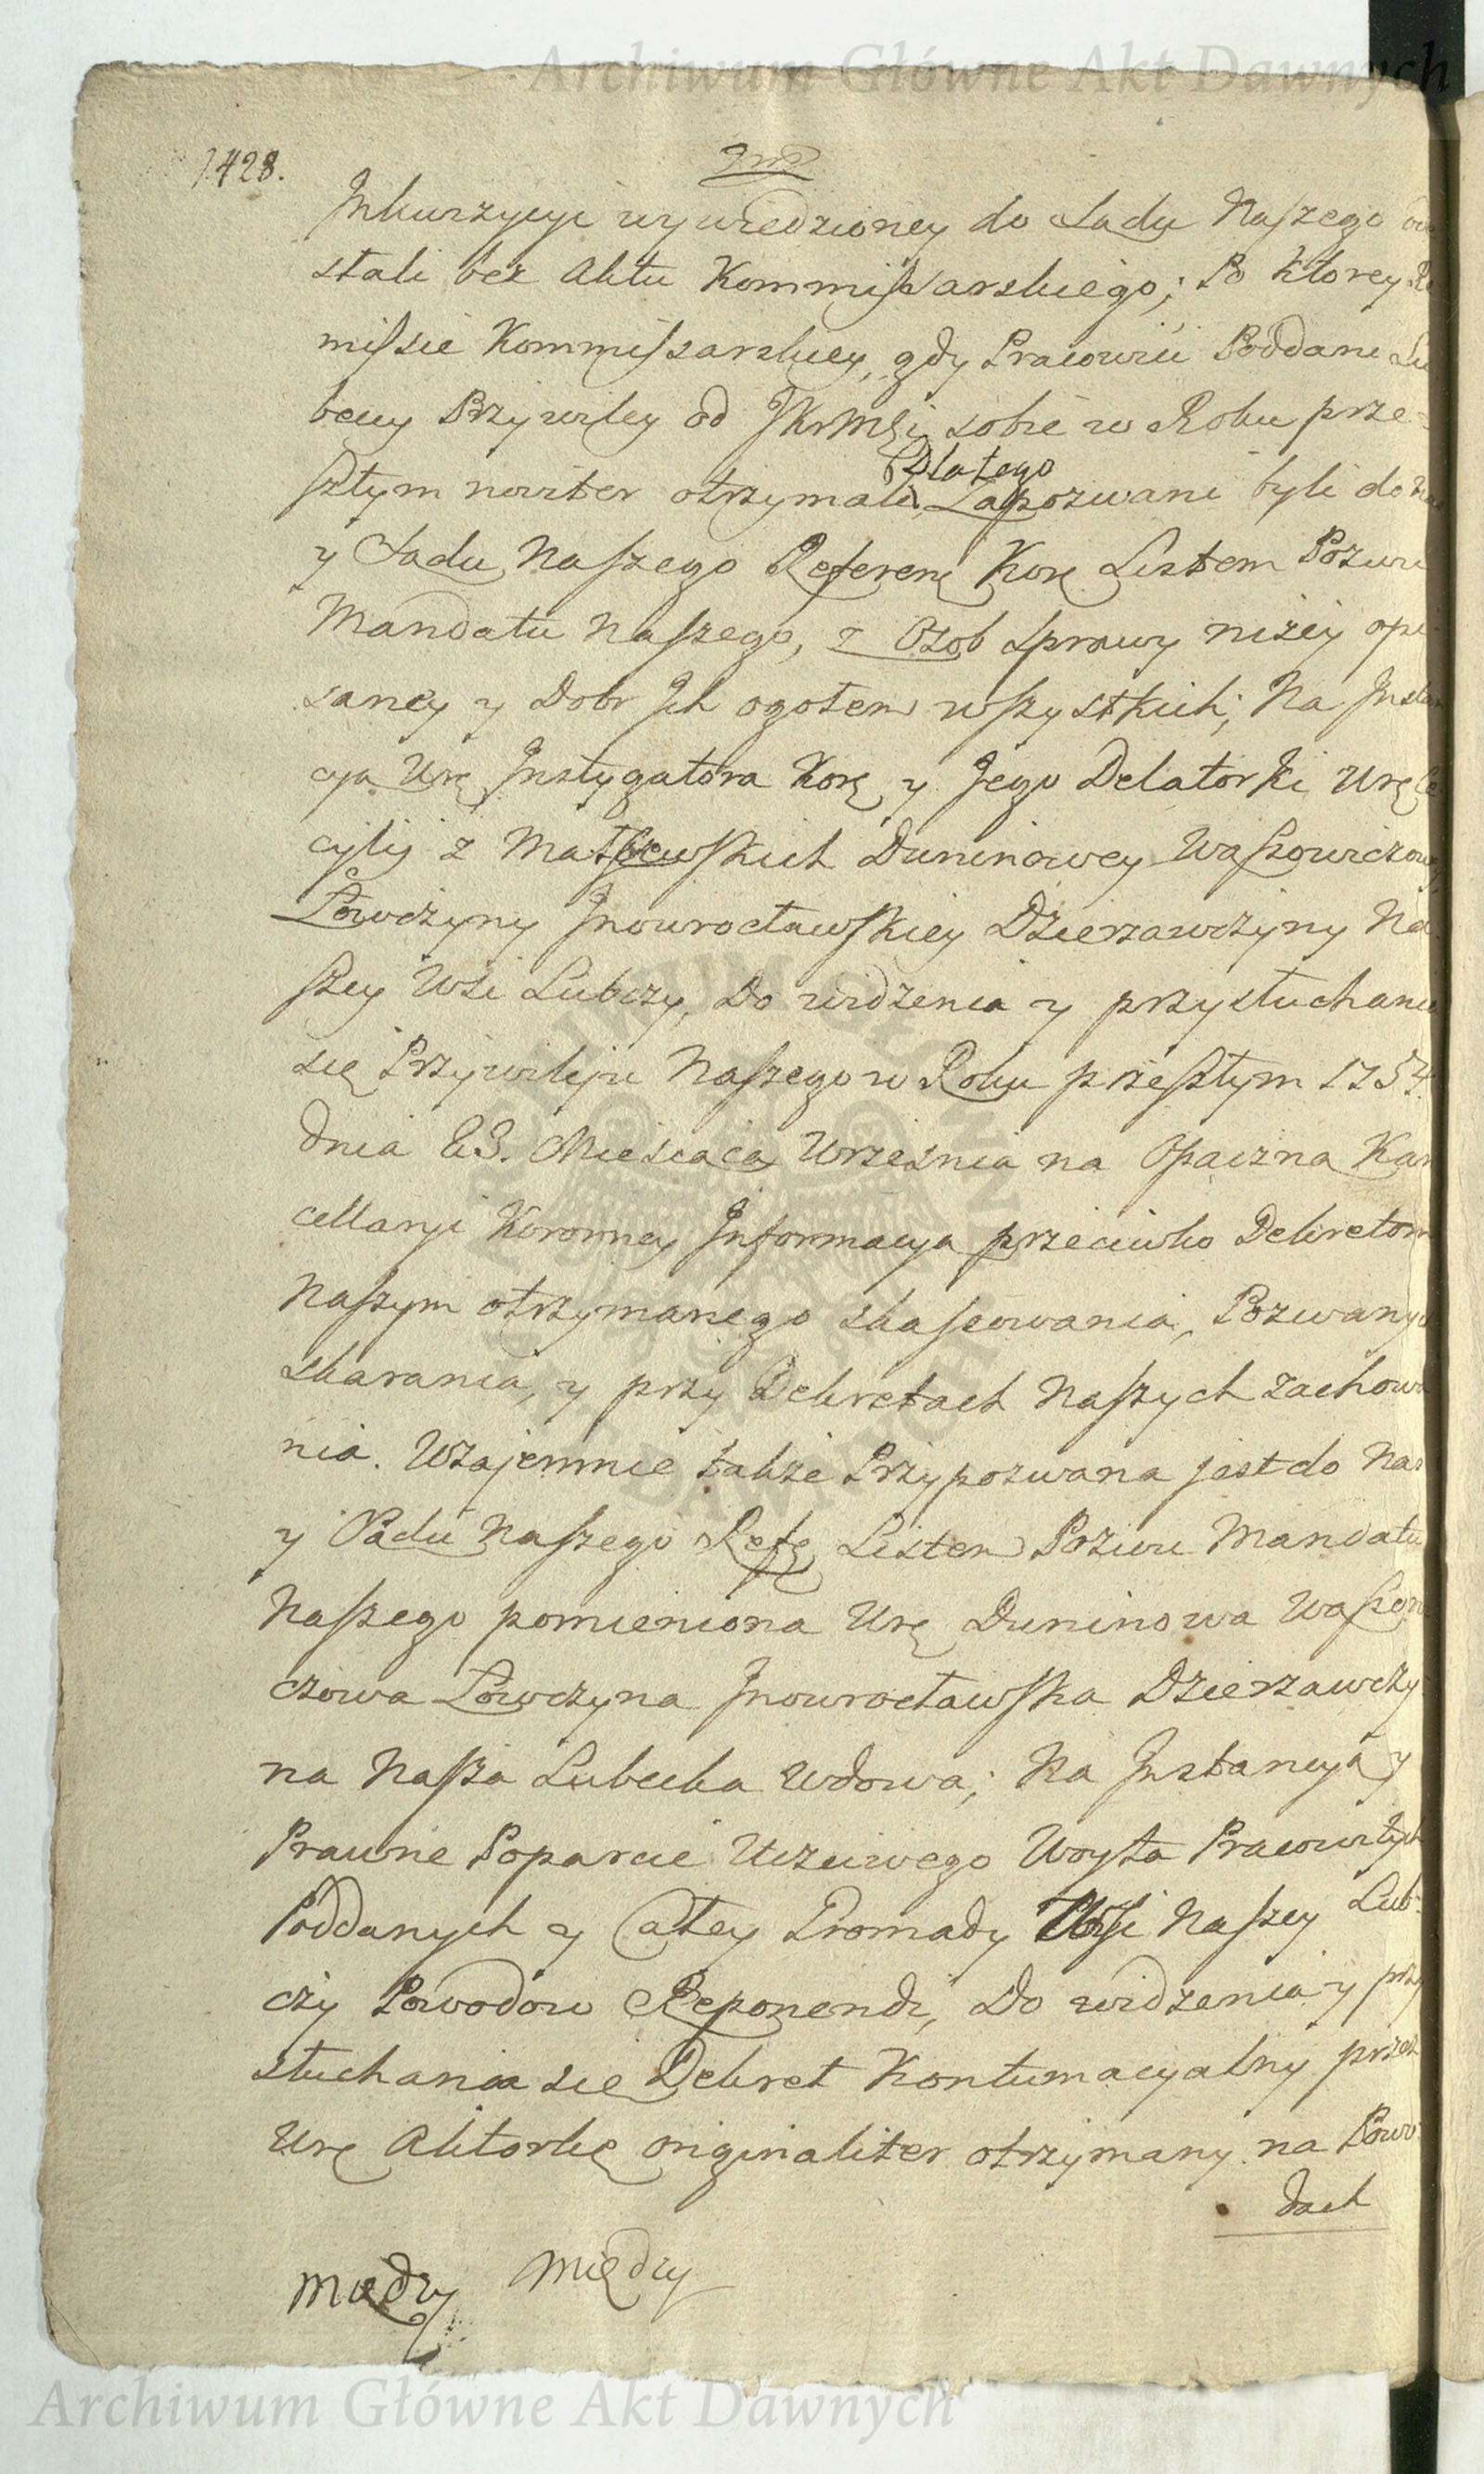 Archiwum Główne Akt Dawnych
1428.
Inkwizycyi wywiedzioney do Sądu Naszego
stali bez Aktu Kommissarskiego; Po ktorey Re
missie Kommissarskiey, gdy Pracowici Poddani Lu
beccy Przywiley od JKrMci sobie w Roku prze=
szłym noviter otrzymali,
Dlatego
Zapozwani byli do Nas
y Sądu Naszego Referen Kor Listem Pozwu
Mandatu Naszego, z Osob Sprawy niżey opi
saney y Dobr Ich ogołem wszystkich; Na Instan
cyą Ur Instygatora Kor y Jego Delatorki Ur Ce
cylij z Duninowey Wąsowiczowy,
Łowczyny Inowrocławskiey Dzierzawczyny Na
szey Wsi Lubczy, Do widzenia y przysłuchania
się Przywileju Naszego w Roku przeszłym 1754.
dnia 23. Miesiąca Września na Opaczną Kan
cellaryi Koronney Informacyą przeciwko Dekretom
Naszym otrzymanego skassowania, Pozwanych
skarania, y przy Dekretach Naszych zachowa
nia. Wzajemnie także Przypozwana jest do Nas
y Sądu Naszego Refe Listem Pozwu Mandatu
Naszego pomieniona Ur Duninowa Wąsowi
czowa Łowczyna Inowrocławska Dzierzawczy
na Nasza Lubecka Wdowa; Na Instancyą y
Prawne Poparcie Uczciwego Woyta Pracowitych
Poddanych y Całey Gromady Wsi Naszey Lub=
czy Powodow Reponendi, Do widzenia y przy
słuchania się Dekret Kontumacyalny przez
Ur Aktorkę originaliter otrzymany na Powo
dach
Między Między
Archiwum Główne Akt Dawnych